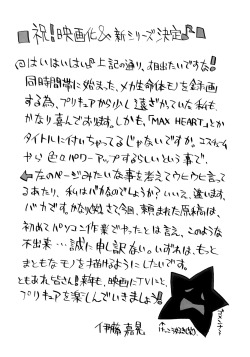 祝!映画化&新シリーズ決定♪
はいはいはい♪上記の通り、お目出たいですな!
同時間帯に始まった、メカ生命体モノを録画
する為、プリキュアから少し遠ざかっていた私も
かなり喜んでおります。しかも、「MAX HEART」とか
タイトルに付いちゃってるじゃないですか。コスチューム
やら色々パワーアップするらしいという事で、
←左のページみたいな事を考えてウヒウヒ言って
るあたり、私はバカなのでしょうか?いいえ、違います、
バカです。かなり笑。さて今回、頼まれた原稿は、
初めてパソコン作業でやったとは言え、このような
不出来…誠に申し訳ない。いずれは、もっと
まともなモノを描けるようにしたいです。
ともあれ皆さん!来年も、映画にTVにと、
プリキュアを楽しんでいきましょう!
伊藤嘉晃